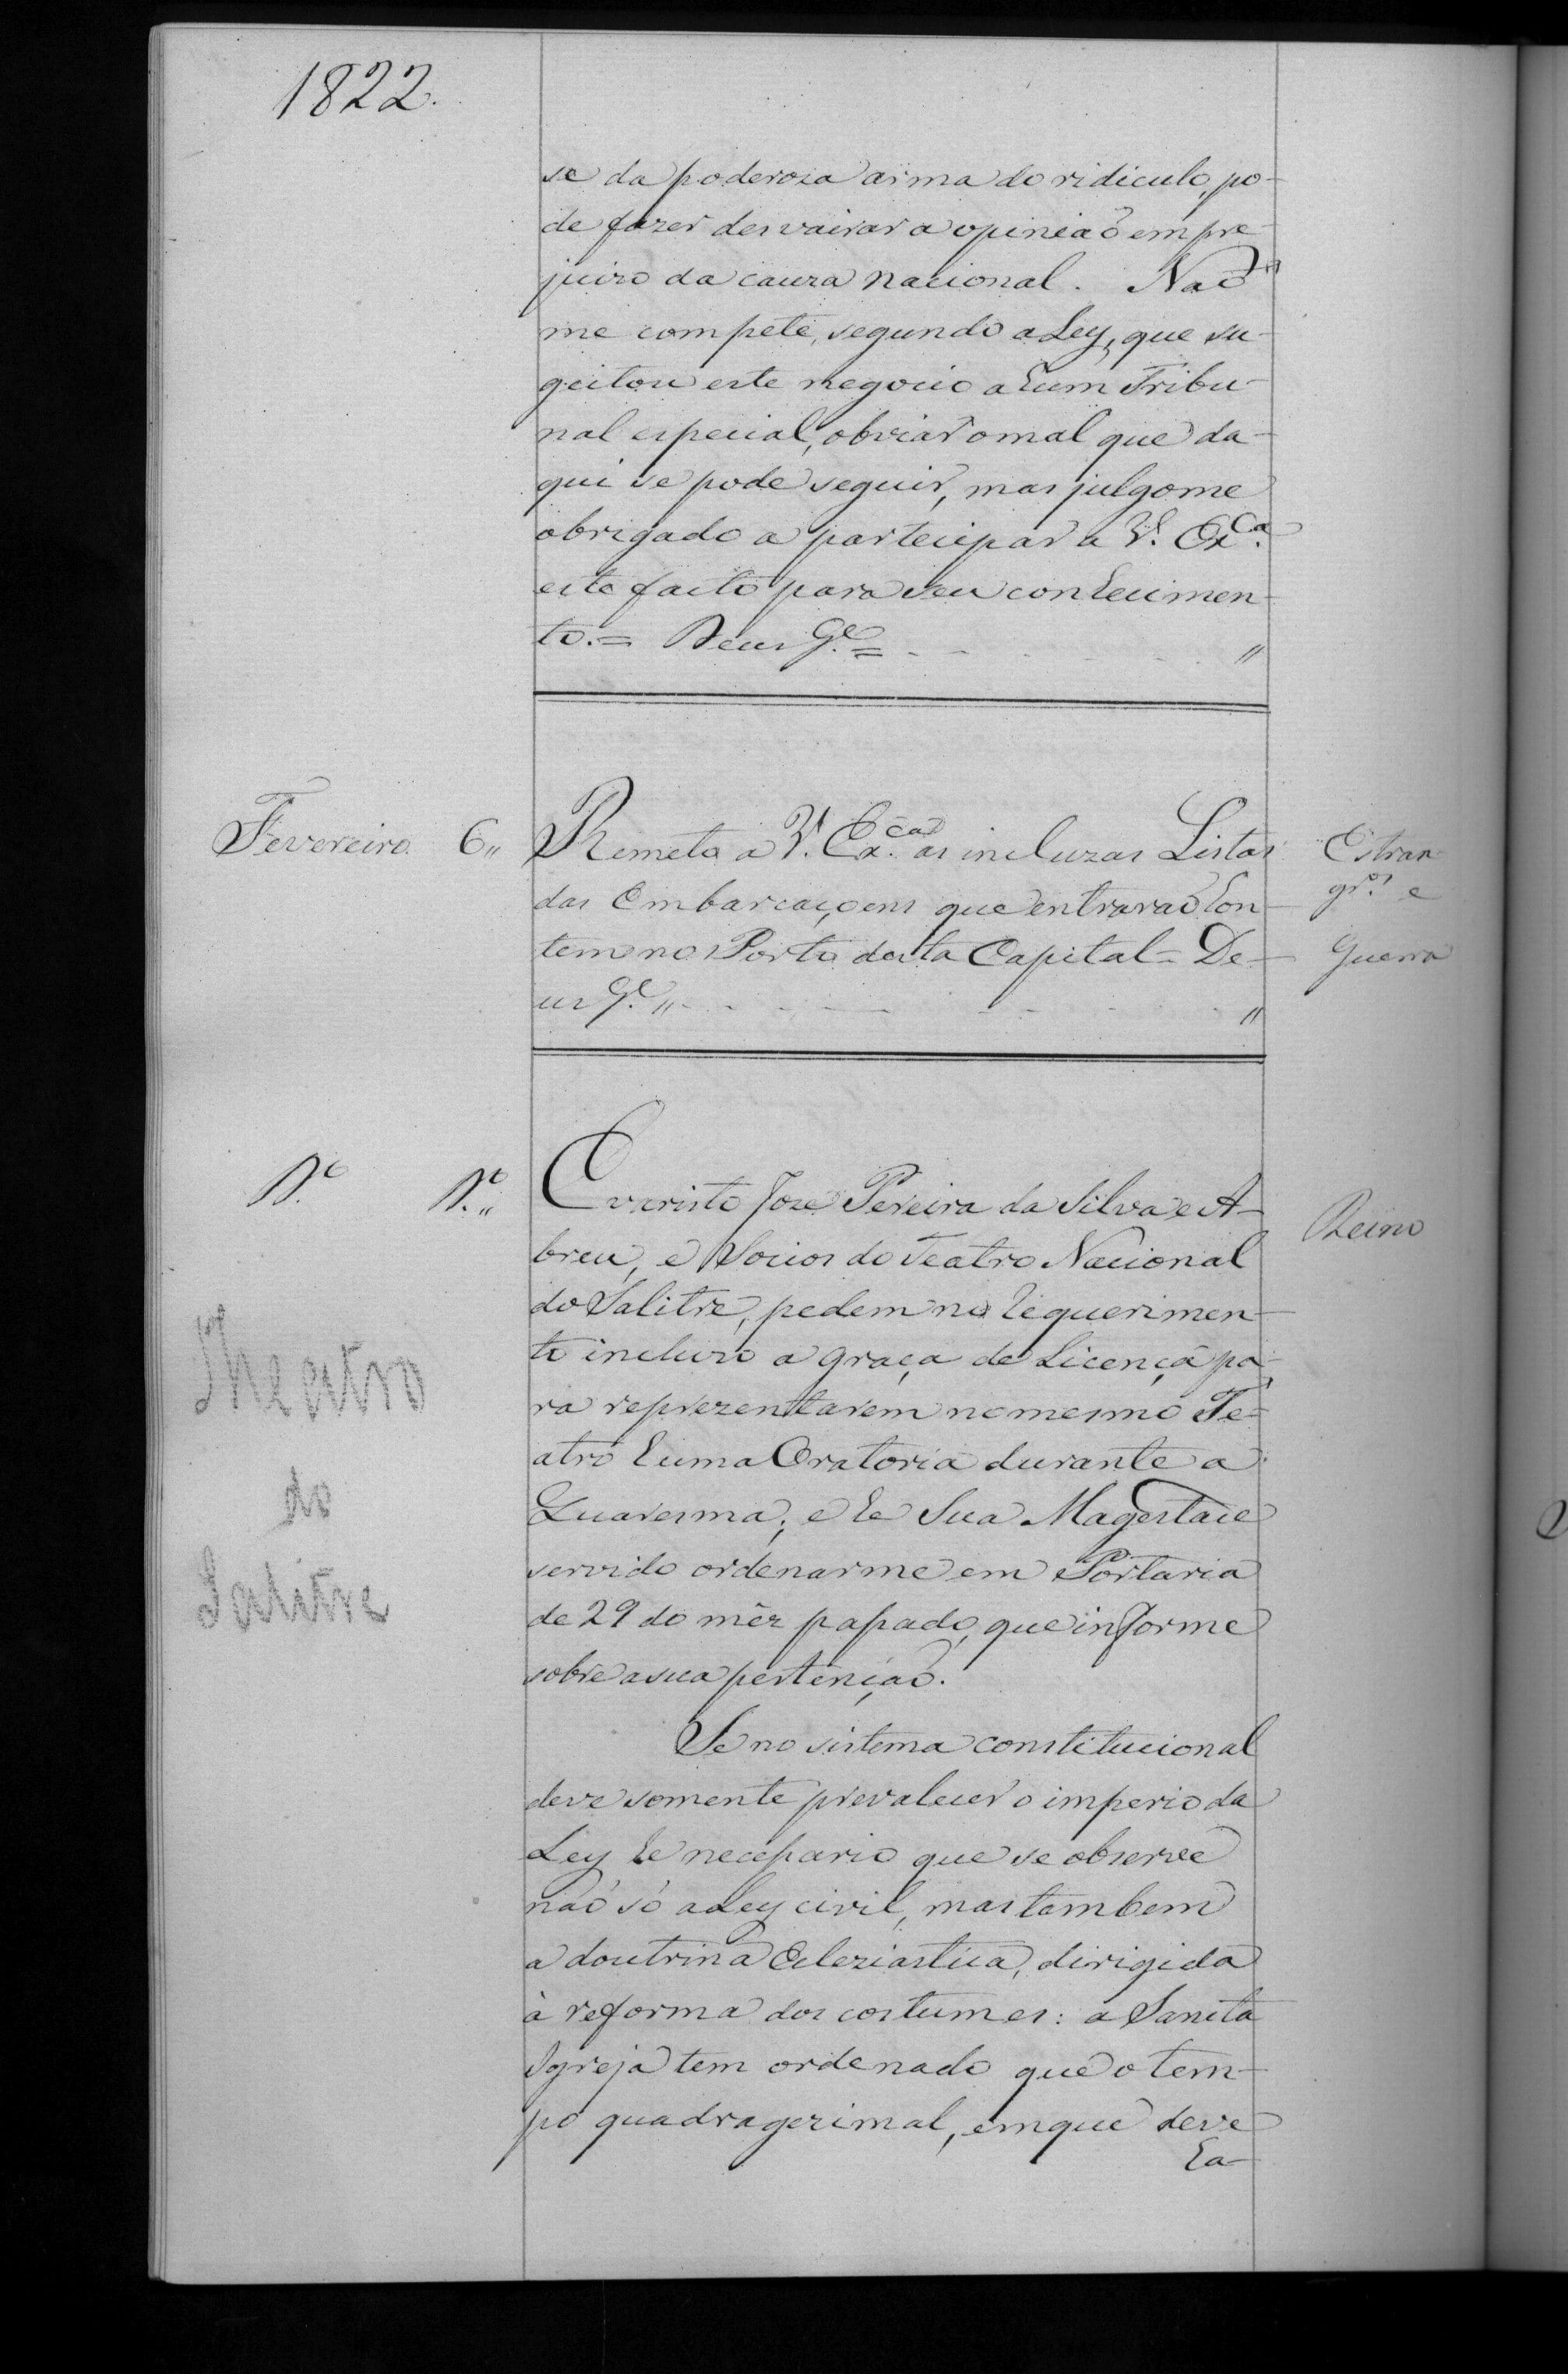 1822.
se da poderoza arma do ridiculo, po-
de fazer desvairar a opinião em pre-
juizo da cauza nacional. Não
me compete, segundo a Ley, que su-
geitou este negocio a hum Tribu-
nal especial, obviar o mal que da-
qui se pode seguir, mas julgome
obrigado a partecipar a V. Ex.ca
este facto para seu conhecimen-
to. = Deus G.e = "
Fevereiro 6,, Remeto a V. Ex.ca as incluzas Listas Estran-
das Embarcaçoens que entrarão hon- gr.os e
tem no Porto desta Capital = De- Guerra
us G.e " "
D.o D.o,, Evaristo Jozé Pereira da Silva e A- Reino
breu, e Socios do Teatro Nacional
do Salitre, pedem no requerimen-
to incluzo a graça de Licença pa-
ra reprezentarem no mesmo Te-
atro huma Oratoria durante a
Quaresma; e he Sua Magestade
servido ordenarme em Portaria
de 29 do mêz passado, que informe
sobre a sua pertenção.
Theatro
do
Salitre
Se no sistema constitucional
deve somente prevalecer o imperio da
Ley he necessario que se observe
não só a Ley civil, mas tambem
a doutrina Ecleziastica, dirigida
à reforma dos costumes: a Santa
Igreja tem ordenado que o tem-
po quadragezimal, em que deve
ha-